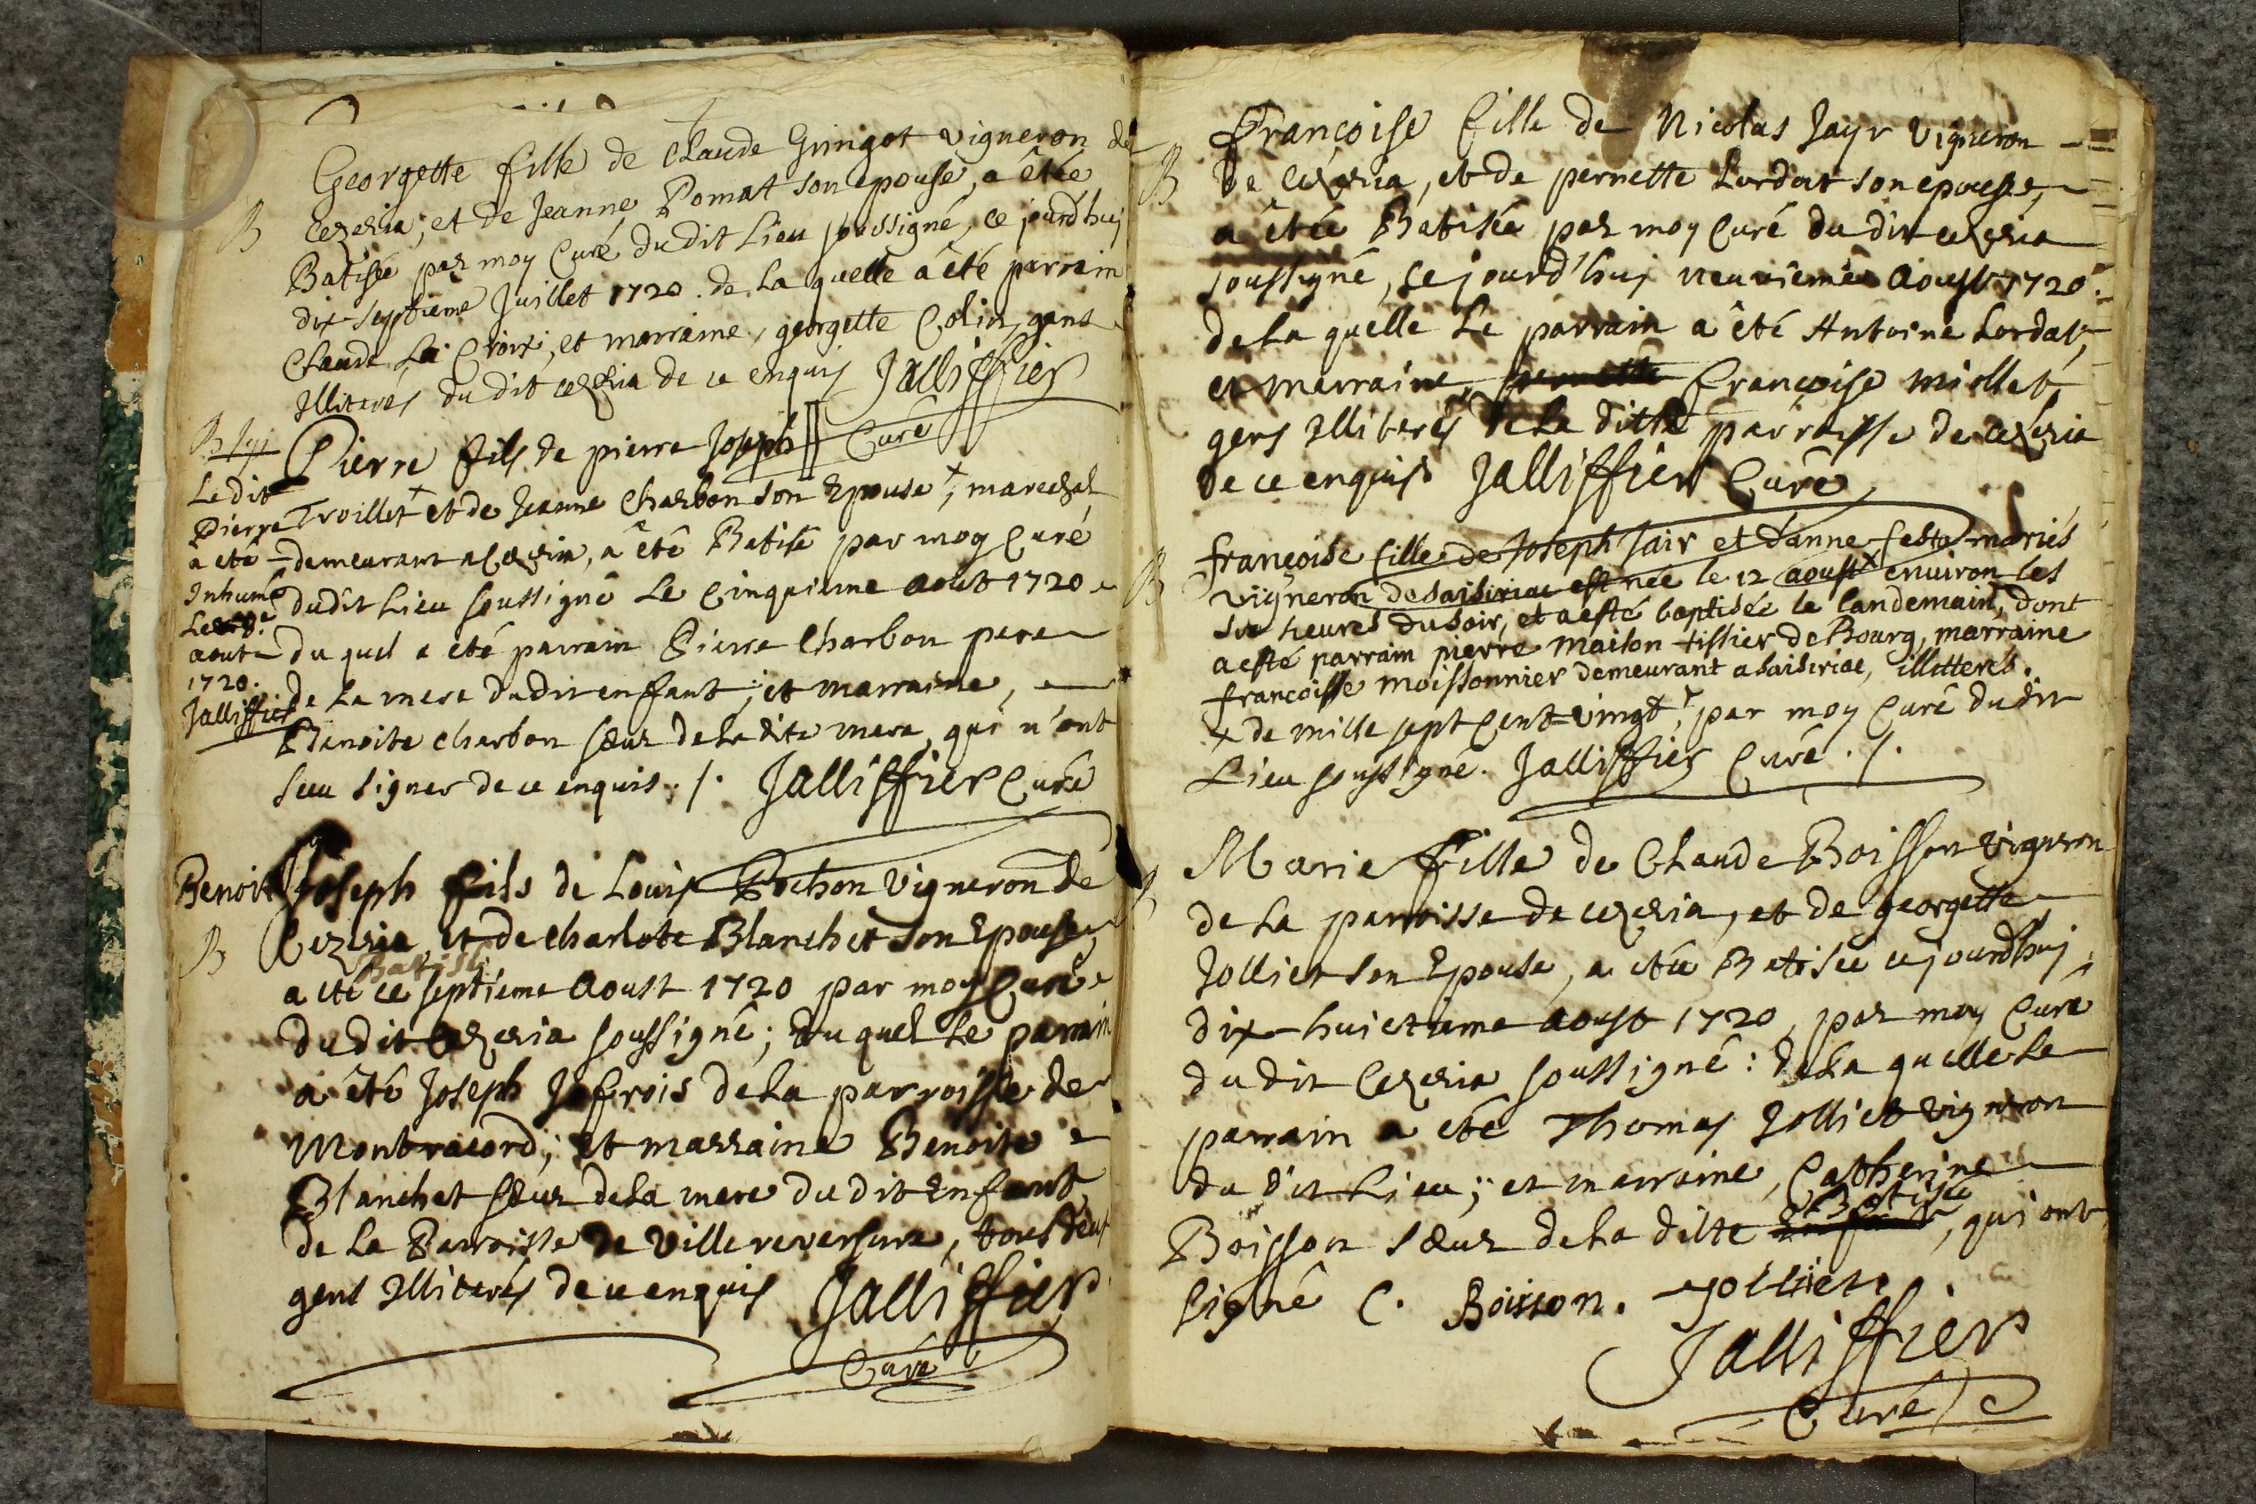 Georgette fille de Claude Gringot vigneron de
B Cezeria, et de Jeanne Pomat son epouse, a êtée
Batisée par moy Curé du dit Lieu soussigné, ce jourd'huy
dix-septieme Juillet 1720. de la quelle a été parrain
Claude La Croix, et marraine, georgette Colin, gens
Illiterés du dit cezeria de ce enquis Jalliffier
Curé
B
Pierre fils de pierre Joseph
Troillet + et de Jeanne Charbon son Epouse +, marechal
demeurant a Cezeria, a êté Batisé par moy Curé
dudit Lieu soussigné Le Cinquieme aout 1720
du quel a eté parrain Pierre Charbon pere
de la mere dudit enffant; et marraine,
Benoite charbon sœur de la dite mere, qui n'ont
sceu signer de ce enquis ./. Jalliffier Curé
Le dit
Pierre
a eté
Inhumé
aout
1720.
Jalliffier
Benoit Joseph fils de Louis Pochon vigneron de
B Cezeria et de Charlote Blanchet son Epouse,
Batisé
a eté ce septiéme Aoust 1720 par moy Curé
dudit Cezeria soussigné; du quel le parrain
a êté Joseph Jofrois de la parroisse de
Montracord; et marraine Benoite
Blanchet sœur de la mere du dit Enfant,
de la Parroisse de Villereversure, tous deux
gens Illiterés de ce enquis Jalliffier
Curé
Françoise fille de Nicolas Jayr vigneron
B de Cezeria, et de pernette Lordat son epouse,
a êtée Batisée par moy Curé du dit cezeria
soussigné, ce jourd'huy neuviéme Aoust 1720.
de la quelle Le parrain a êté Antoine Lordat,
et marraine, pernette Françoise miollet,
gens Illiterés de la ditte parroisse de cezeria
de ce enquis Jalliffier Curé
B françoise fille de Joseph Jair et d'anne festa mariés
vigneron de saisiriac est née le 12 aoust x environ les
six heures du soir, et a esté baptisée le landemain, dont
a esté parrain pierre maiton tissier de Bourg, marraine
françoise moissonnier demeurant a saisiriac, illitterés.
x de mille sept Cent vingt, + par moy Curé dudit
Lieu soussigné. Jalliffier Curé ./.
B Marie fille de Claude Boisson vigneron
de la parroisse de cezeria, et de georgette
Jolliet son Epouse, a êtée Batisée cejourdhuy
dix-huictieme Aoust 1720, par moy Curé
du dit Cezeria soussigné: de la quelle Le
parrain a êté Thomas Jolliet vigneron
du dit Lieu; et marraine, Catherine
Boisson sœur de la ditte Batisée, qui ont
signé C. Boisson. Jolliet.
Jalliffier
Curé